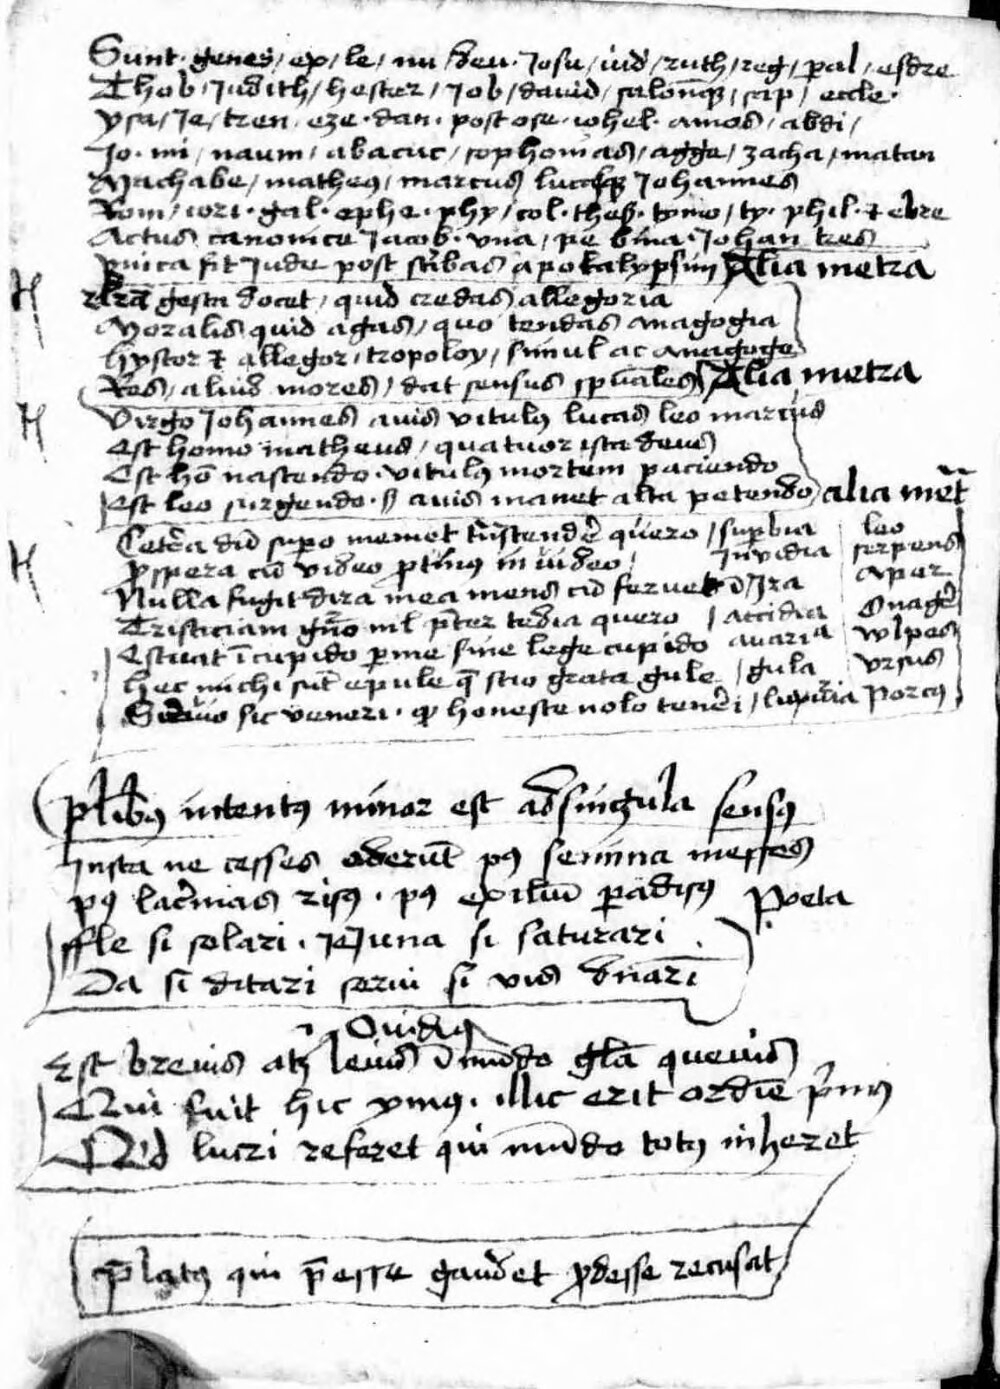 Sunt · genes / ex / le / nu / deu · Josu / iud / ruth / reg / pal / esdre
Thob / Judith / hester / Job / dauid / salomōq₃ / sap / eccle ·
ysa / Je / tren · eze · dan · post ose · iohel · amos / abdi /
Jo · mi / naum / abacuc / sophonias / agge / zacha / matan
Machabe / matheꝰ / marcus lucasq₃ Johannes
Rom / cori · gal · ephe · phy / col · thes · tymo / ty · phil · ⁊ ebre
Actus canonice Jacob · vna / pe bina · Johan tres
vnica fit Jude post scribas apokalypsim Alia metra
lr̄a gesta docet / quid credas allegoria
Moralis quid agas / quo tendas anagogia
hystor ⁊ allegor / tropoloy / simul ac anagoge
Res / aliud mores / dat sensus spūales Alia metra
Virgo Johannes auis vitulꝰ lucas leo marcus
Est homo matheus / quatuor ista deus
Est hō nascendo · vitulꝰ mortem paciendo
Est leo surgendo · ß auis manet alta petendo alia met̄
Cetera dū supo memet t̄nscendere quero / supbia leo
ꝓspera cū video ꝓtinꝰ in īuideo / Inuidia serpens
Nulla fugit dira mea mens cū feruet ī Jra / Ira Aper
Tristiciam gn̄o nil pter tedia quero / accidia Onager
Estuat ī cupido p me sine lege cupido auaria wlpes
hec michi sūt epule q̄ scio grata gule / gula vrsus
Seruio sic veneri · ꝙ honeste nolo teneri / luxuria Porcꝰ
plibꝰ intentꝰ minor est ad singula sensꝰ
Justa ne cesses oderūt pꝰ semina messes
pꝰ lacrimas risꝰ · pꝰ exiliū paradisꝰ Poeta
ffle si solari · JeJuna si saturari
Da si ditari serui si vis dn̄ari
Ouidiꝰ
Est breuis atq₃ leuis ī mūdo gl̄a queuis
Qui fuit hic ymꝰ · illic erit ordīe p̄mꝰ
Qid lucri referet qui mūdo totꝰ inheret
p̄latꝰ qui p̄esse gaudet ꝓdesse recusat